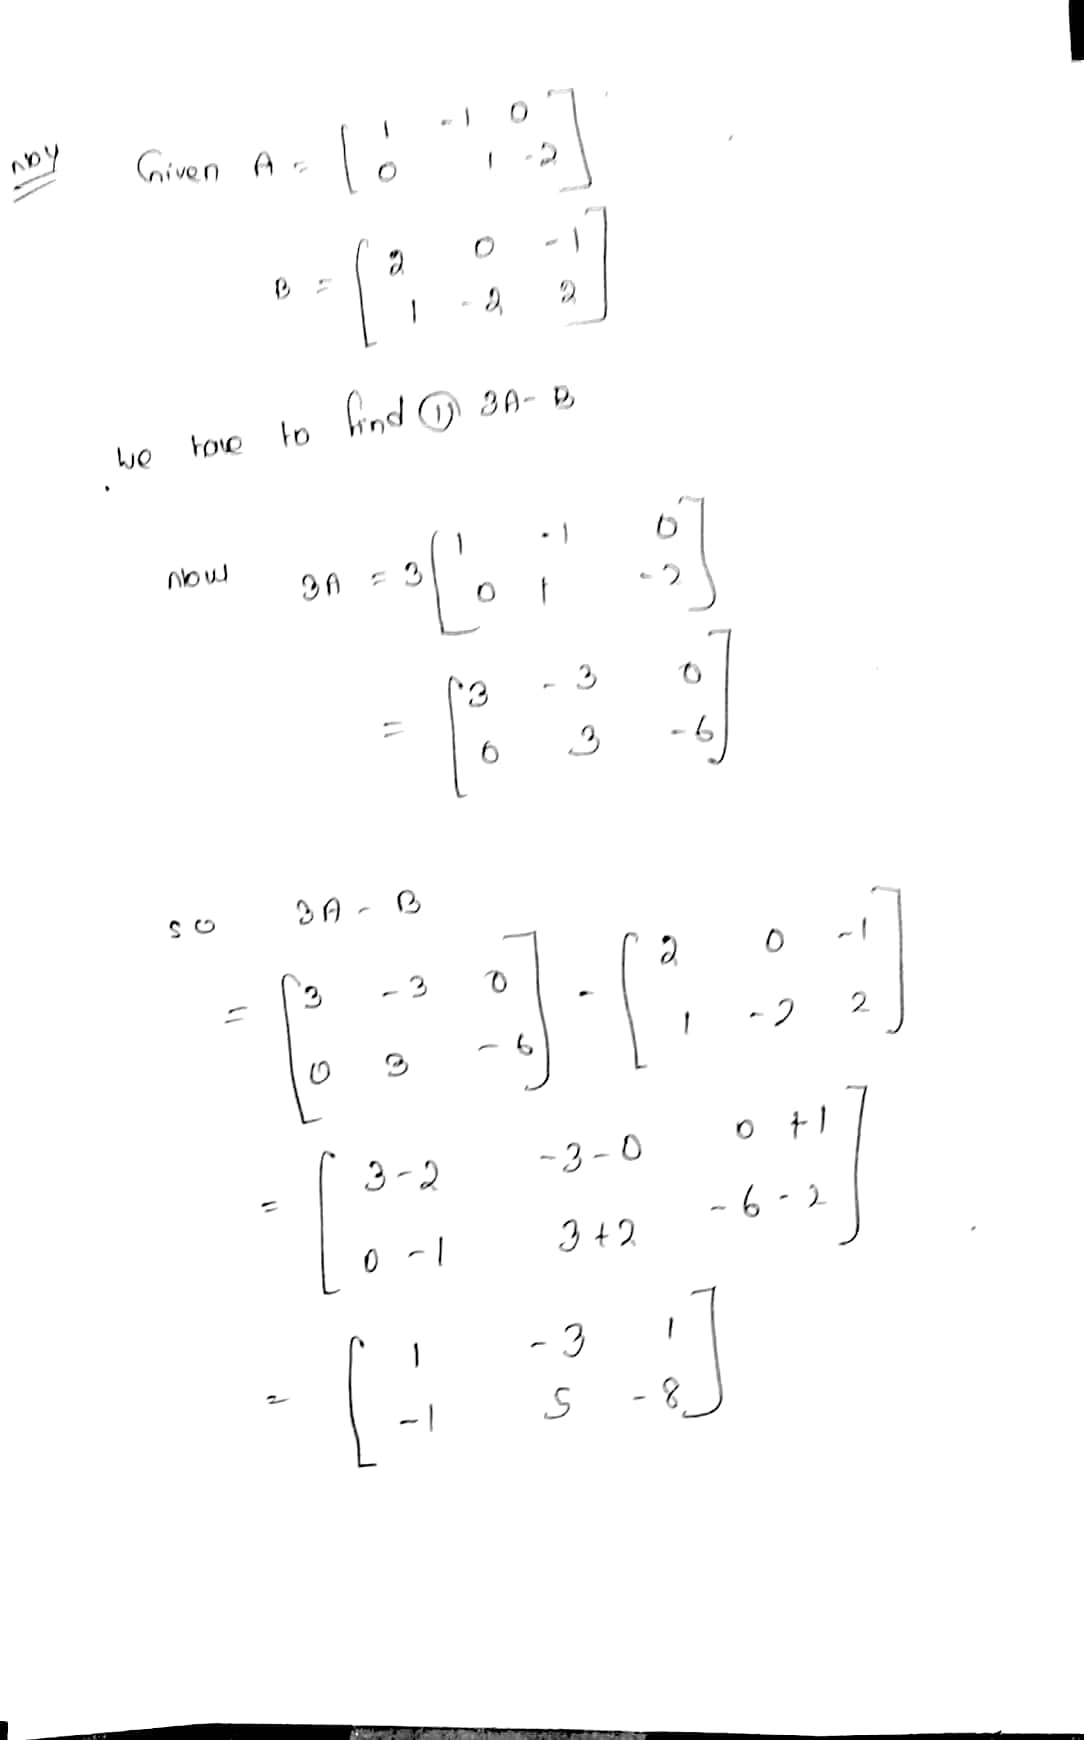 Given A = [ 1 -1 0
0 1 -2 ]
B = [ 2 0 -1
1 -2 2 ]
we have to find ① 3A - B
now 3A = 3 [ 1 -1 0
0 1 -2 ]
= [ 3 -3 0
0 3 -6 ]
so 3A - B
= [ 3 -3 0
0 3 -6 ] - [ 2 0 -1
1 -2 2 ]
= [ 3-2 -3-0 0+1
0-1 3+2 -6-2 ]
= [ 1 -3 1
-1 5 -8 ]